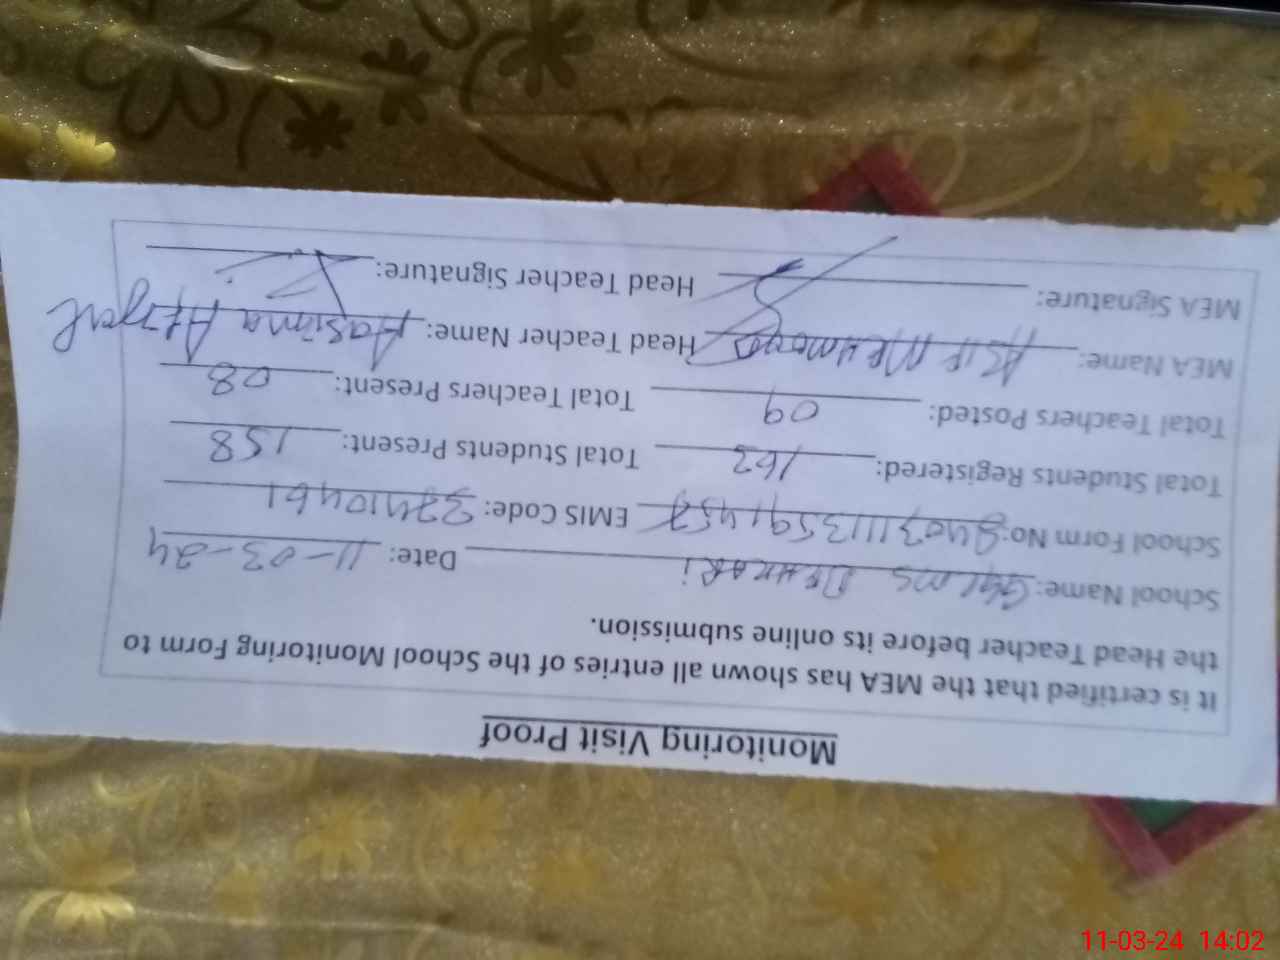 Monitoring Visit Proof
It is certified that the MEA has shown all entries of the School Monitoring Form to
the Head Teacher before its online submission.
School Name: Date: 11-03-24
School Form No: EMIS Code: 37410461
Total Students Registered: 162 Total Students Present: 158
Total Teachers Posted: 09 Total Teachers Present: 08
MEA Name: Asif Mehmood Head Teacher Name: Aasima Afzal
MEA Signature: Head Teacher Signature:
11-03-24 14:02